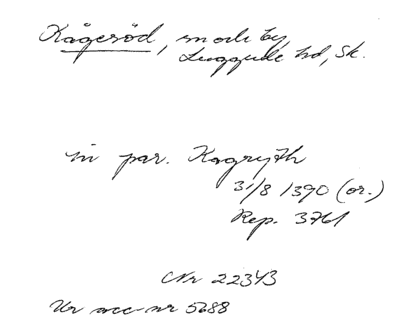 Kågeröd, sn och by,
Luggude hd, Sk.
in par. Kagryth
31/8 1390 (or.)
Rep. 3761
Nr 22343
Ur acc nr 5688